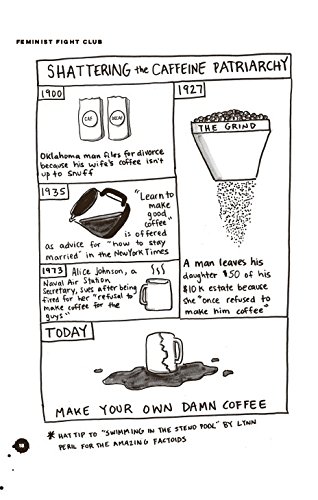 FEMINIST FIGHT CLUB
SHATTERING the CAFFEINE PATRIARCHY
1900
CAF
DECAF
Oklahoma man files for divorce
because his wife's coffee isn't
up to snuff
1935
"Learn to
make
good
coffee"
is offered
as advice for "how to stay
married" in the New York Times
1973 Alice Johnson, a
Naval Air Station
Secretary, sues after being
fired for her "refusal to
make coffee for the
guys"
1927
THE GRIND
A man leaves his
daughter $50 of his
$10K estate because
she "once refused to
make him coffee"
TODAY
MAKE YOUR OWN DAMN COFFEE
* HAT TIP TO "SWIMMING IN THE STENO POOL" BY LYNN
PERIL FOR THE AMAZING FACTOIDS